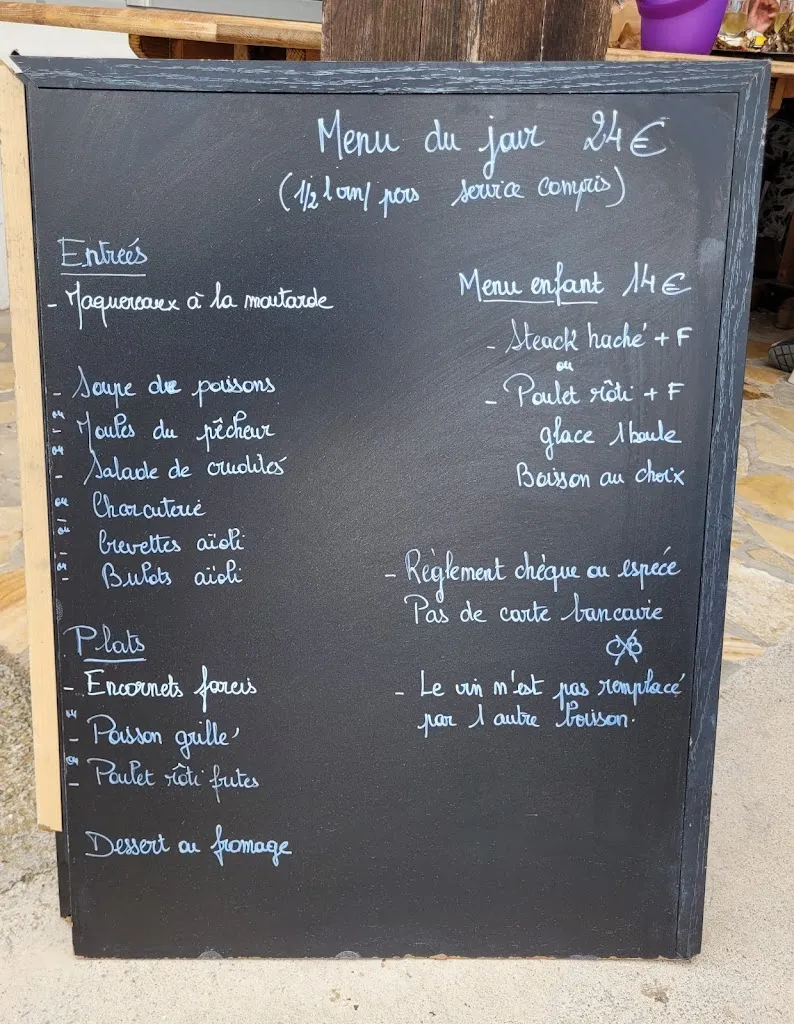 Menu du jour 24€
(1/2 l vin/pers service compris)
Entrées
- Maquereaux à la moutarde
- Soupe de poissons
ou
- Moules du pêcheur
ou
- Salade de crudités
ou
- Charcuterie
ou
- Crevettes aïoli
ou
- Bulots aïoli
Plats
- Encornets farcis
ou
- Poisson grillé
ou
- Poulet rôti frites
Dessert ou fromage
Menu enfant 14€
- Steack haché + F
ou
- Poulet rôti + F
glace 1 boule
Boisson au choix
- Règlement chèque ou espéce
Pas de carte bancaire
CB
- Le vin n'est pas remplacé
par 1 autre boisson.